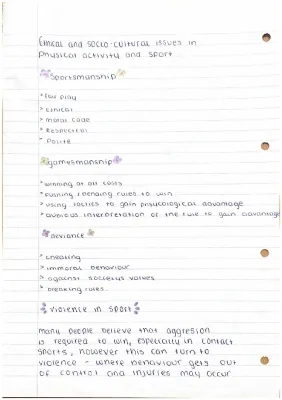 Ethical and socio-cultural issues in
physical activity and sport
Sportsmanship
* fair play
> ethical
> moral code
* Respectful
* Polite
gamesmanship
* winning at all costs
* pushing / bending rules to win
> using tactics to gain psychological advantage
* dubious interpretation of the rule to gain advantage
deviance
> cheating
> immoral behaviour
> against societys values
* breaking rules.
violence in sport
many people believe that aggression
is required to win, especially in contact
sports, however this can turn to
violence - where behaviour gets out
of control and injuries may occur